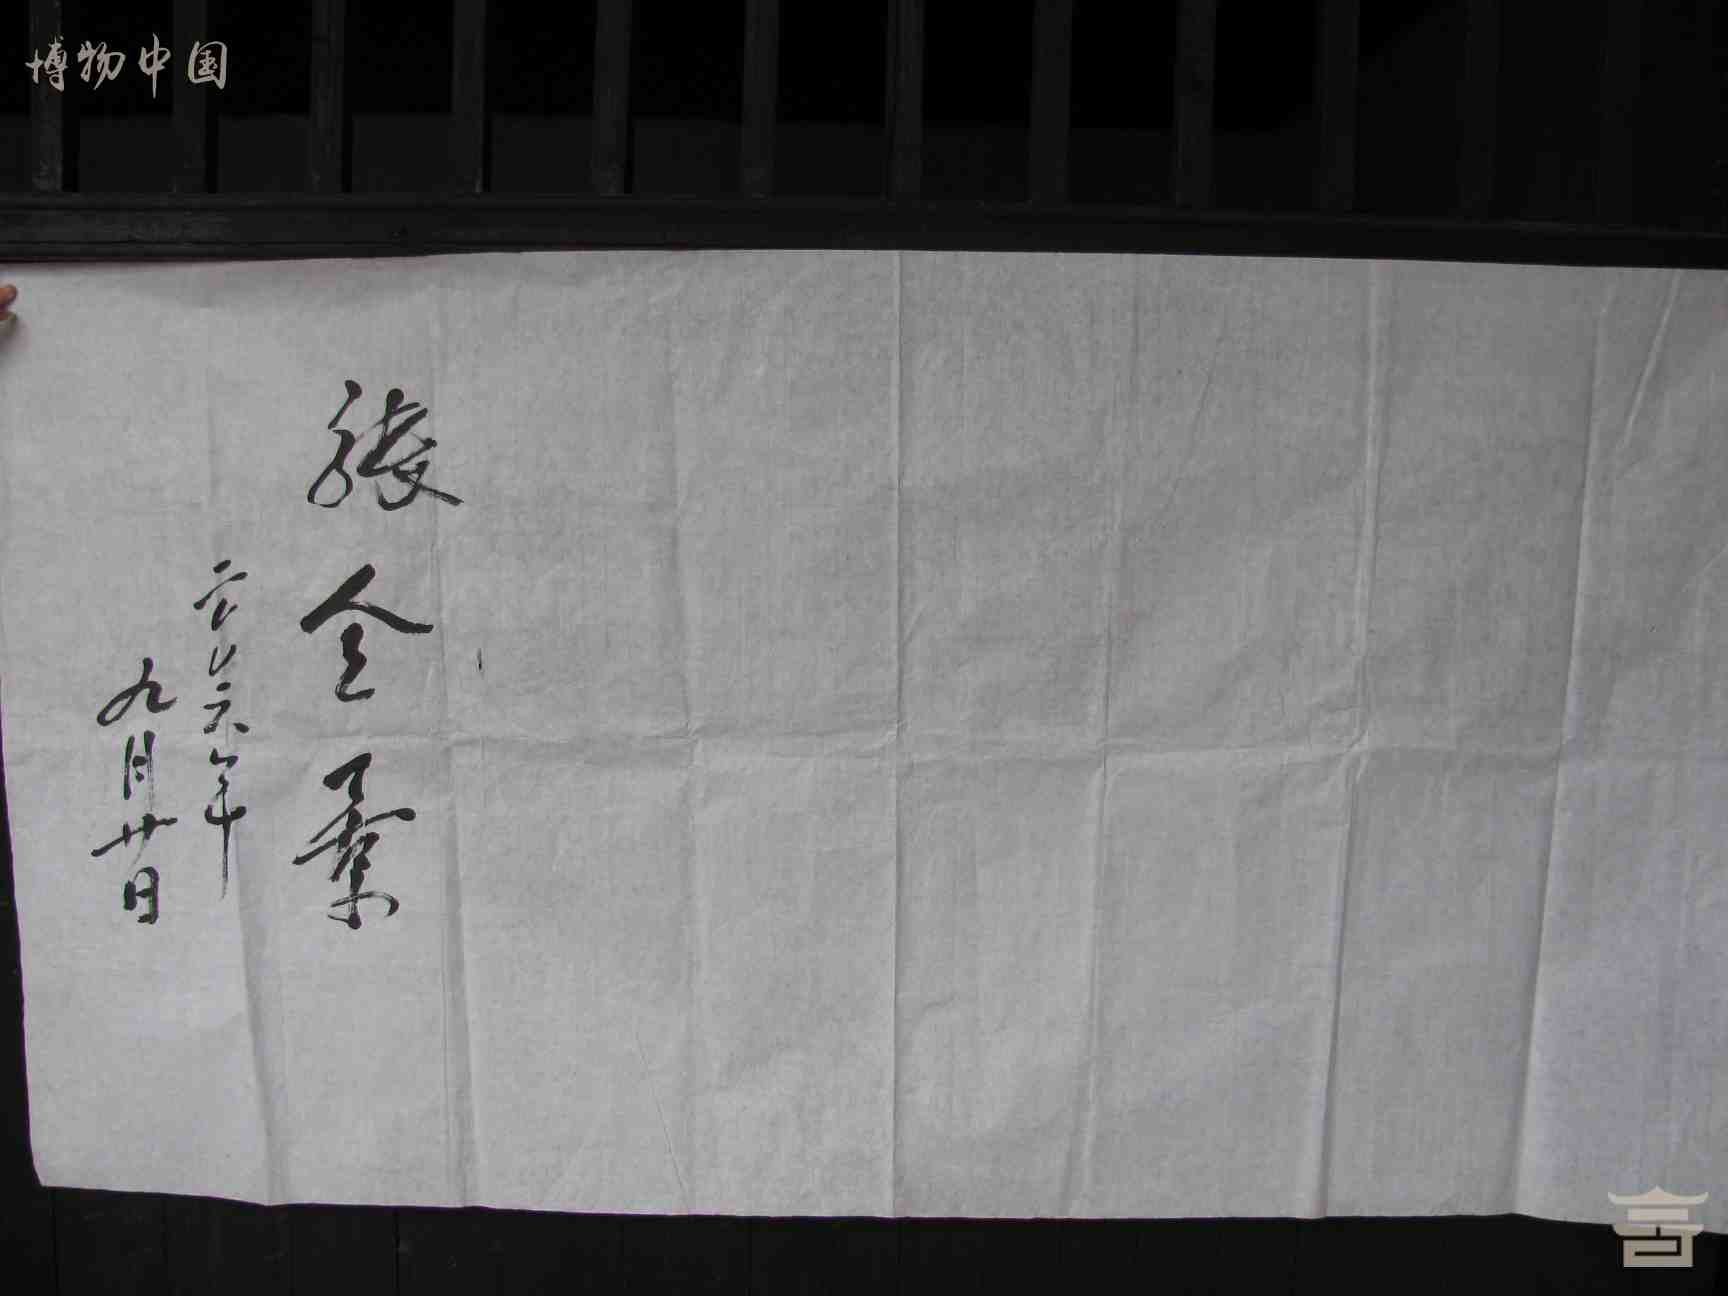 博物中国
張全景
二〇〇六年
九月廿日